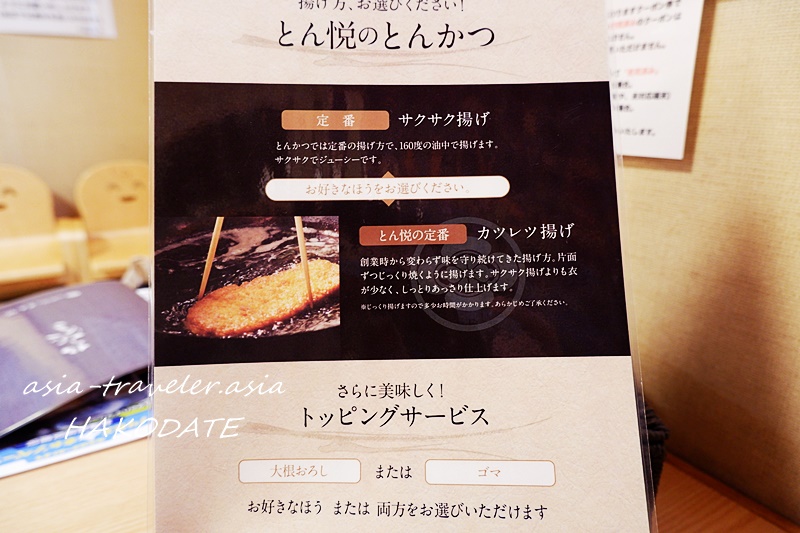 揚げ方、お選びください!
とん悦のとんかつ
定番 サクサク揚げ
とんかつでは定番の揚げ方で、160度の油中で揚げます。
サクサクでジューシーです。
お好きなほうをお選びください。
とん悦の定番 カツレツ揚げ
創業時から変わらず味を守り続けてきた揚げ方。片面
ずつじっくり焼くように揚げます。サクサク揚げよりも衣
が少なく、しっとりあっさり仕上げます。
※じっくり揚げますので多少お時間がかかります。あらかじめご了承ください。
さらに美味しく!
トッピングサービス
大根おろし または ゴマ
お好きなほう または 両方をお選びいただけます
asia-traveler.asia
HAKODATE